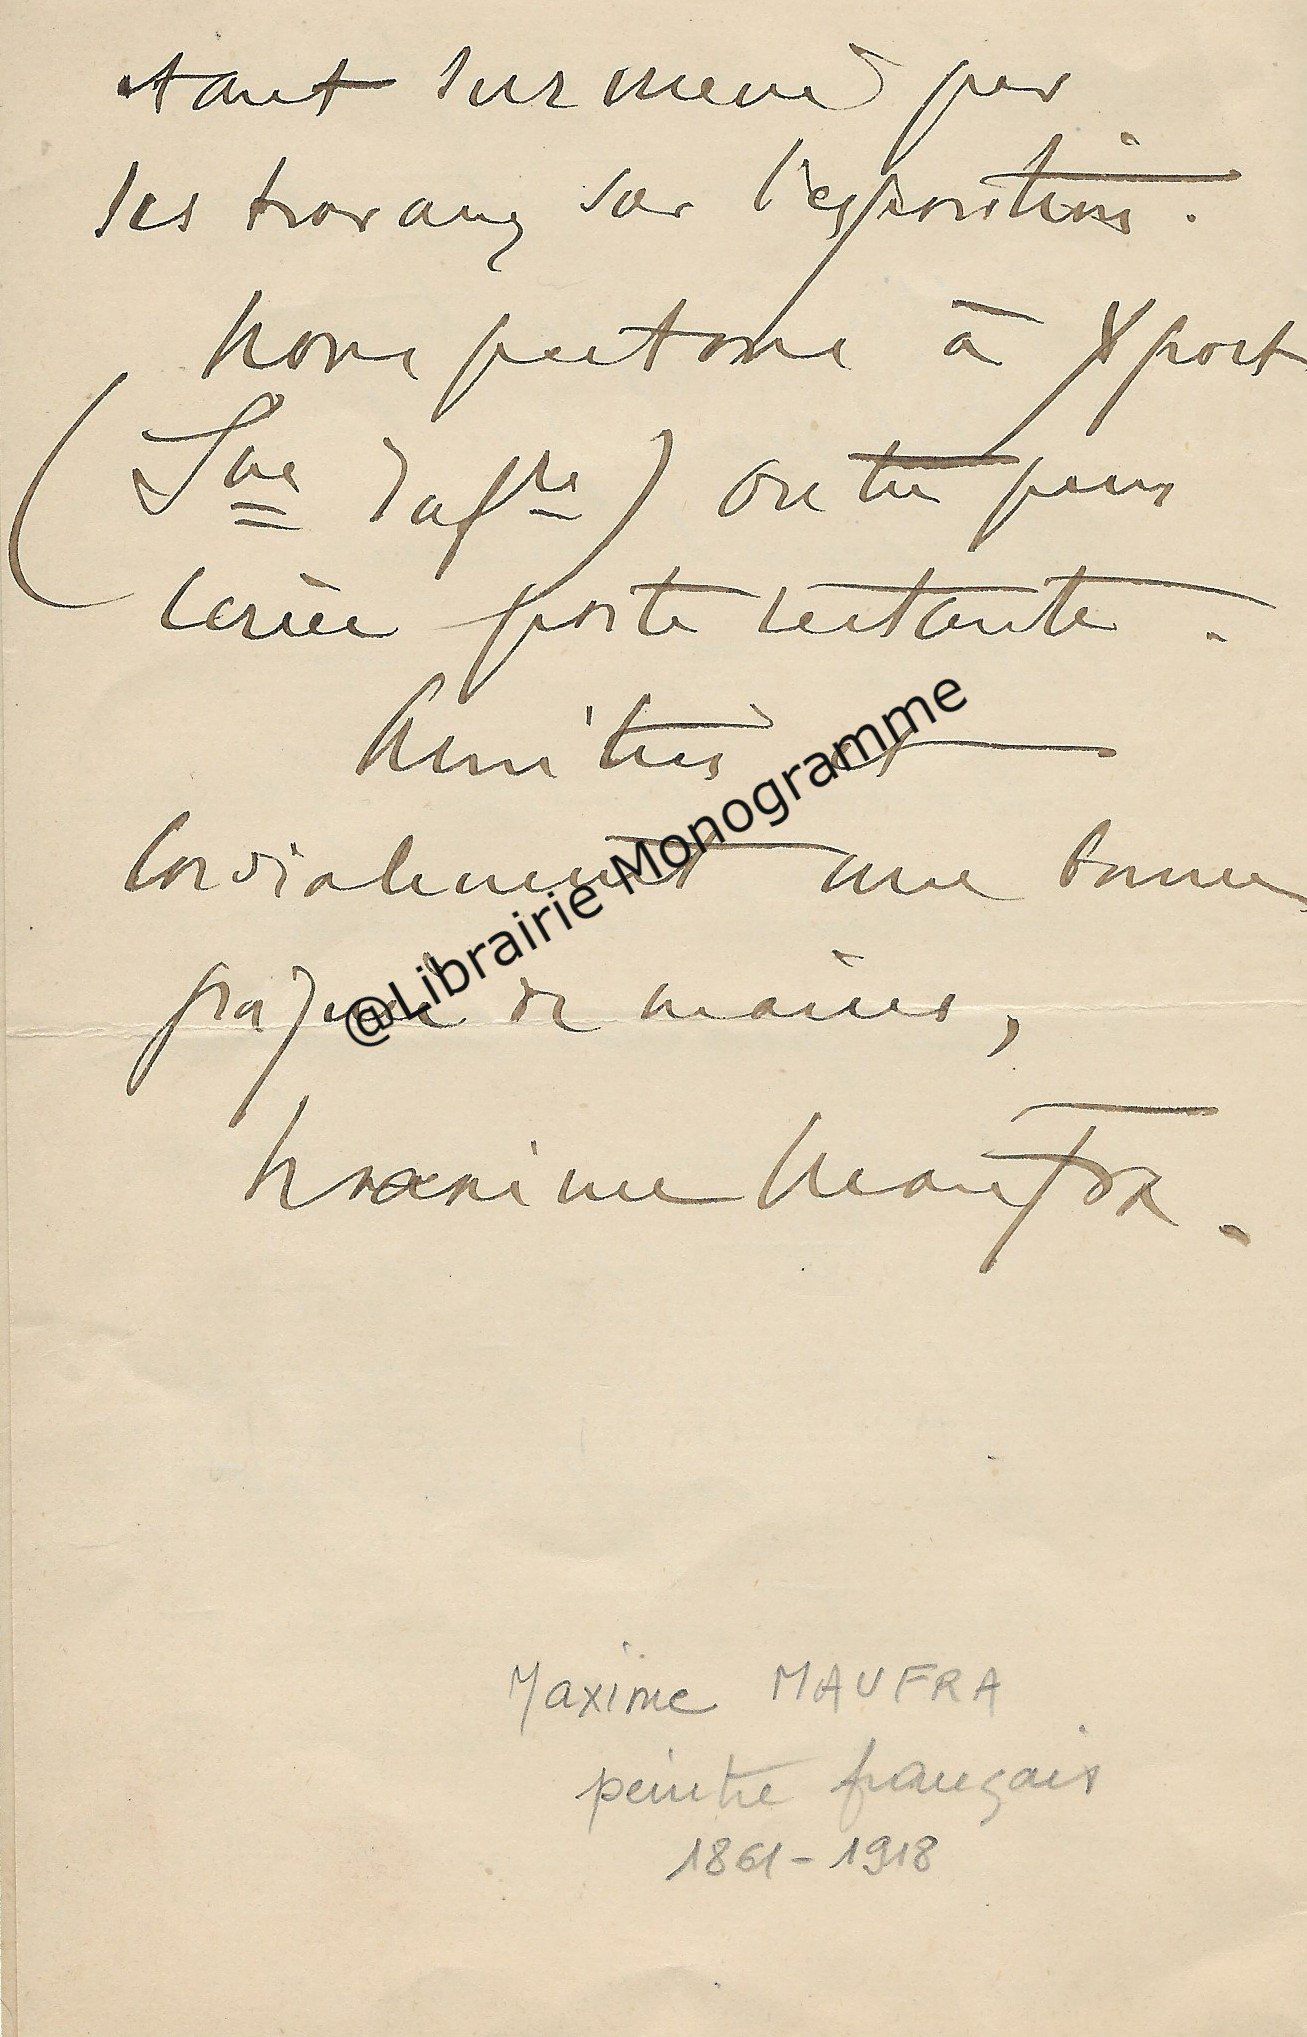 étant surmené par
ses travaux sur l'exposition.
Nous partons à Yport
(Sne Infre) où tu peux
écrire poste restante.
Amitiés et
Cordialement une bonne
poignée de mains,
Maxime Maufra.
@Librairie Monogramme
Maxime MAUFRA
peintre français
1861-1918